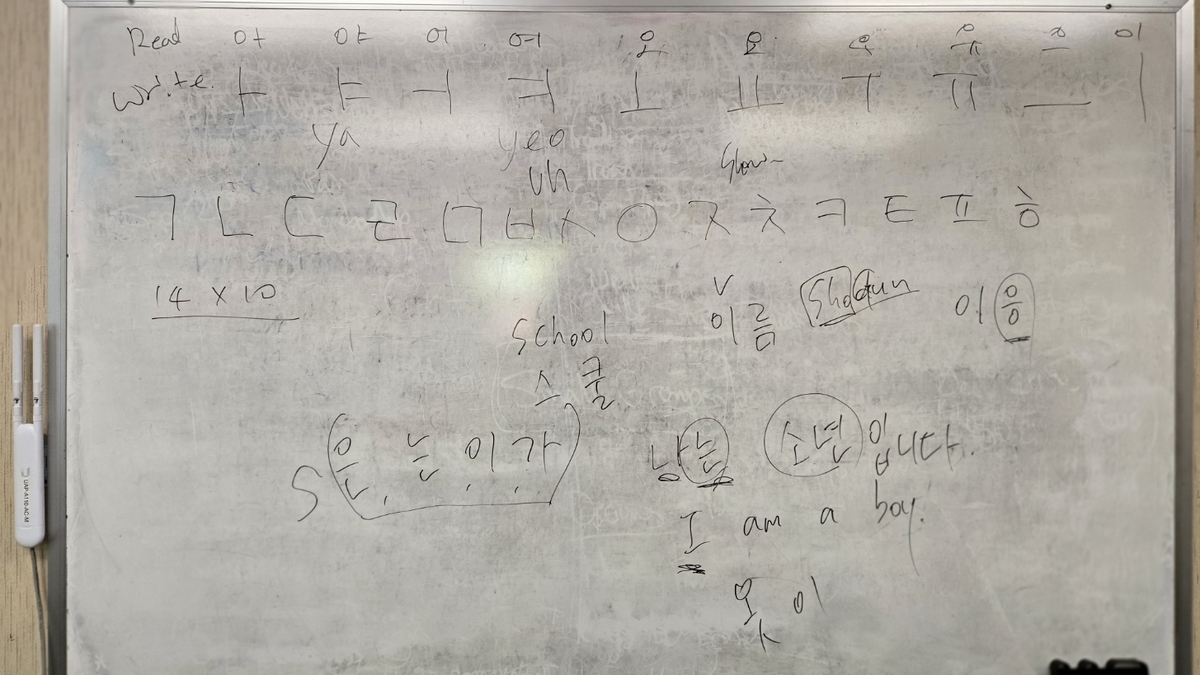 Read 아 야 어 여 오 요 우 유 으 이
Write ㅏ ㅑ ㅓ ㅕ ㅗ ㅛ ㅜ ㅠ ㅡ ㅣ
ya yeo
uh
ㄱ ㄴ ㄷ ㄹ ㅁ ㅂ ㅅ ㅇ ㅈ ㅊ ㅋ ㅌ ㅍ ㅎ
14 x 10
V
이름
이응
School
스쿨
S 은, 는, 이, 가
는 소년입니다.
I am a boy.
옷이
UAP-A110-AC-M